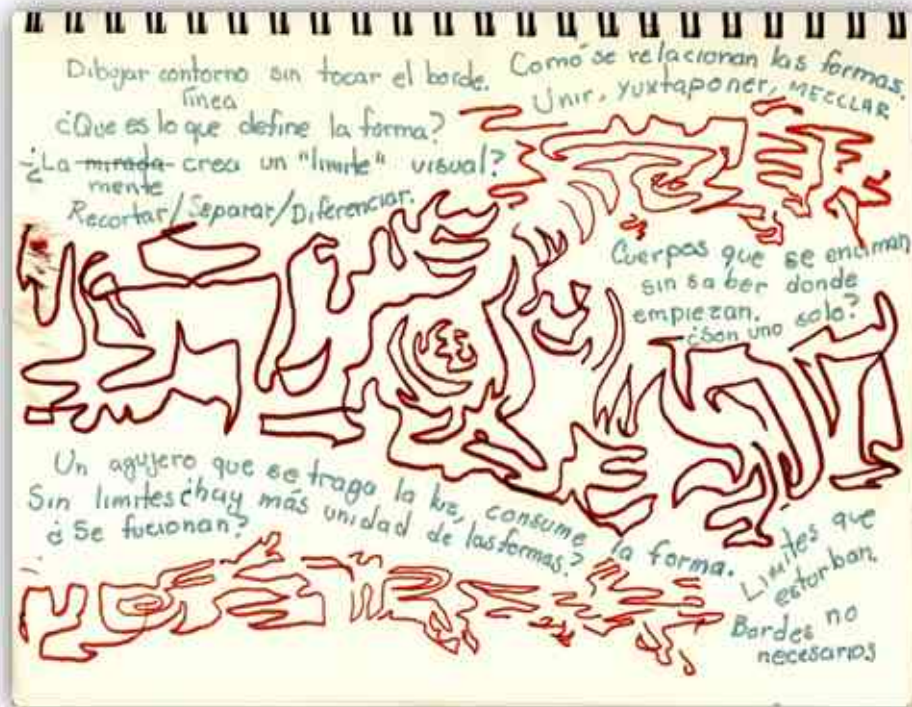 Dibujar contorno sin tocar el borde.
linea
¿Que es lo que define la forma?
¿La mirada crea un "limite" visual?
mente
Recortar/Separar/Diferenciar.
Como se relacionan las formas.
Unir, yuxtaponer, MEZCLAR
Cuerpos que se enciman
sin saber donde
empiezan.
¿Son uno solo?
Un agujero que se traga la luz, consume la forma.
Sin limites ¿hay más unidad de las formas?
¿Se fucionan?
Limites que
estorban.
Bordes no
necesarios